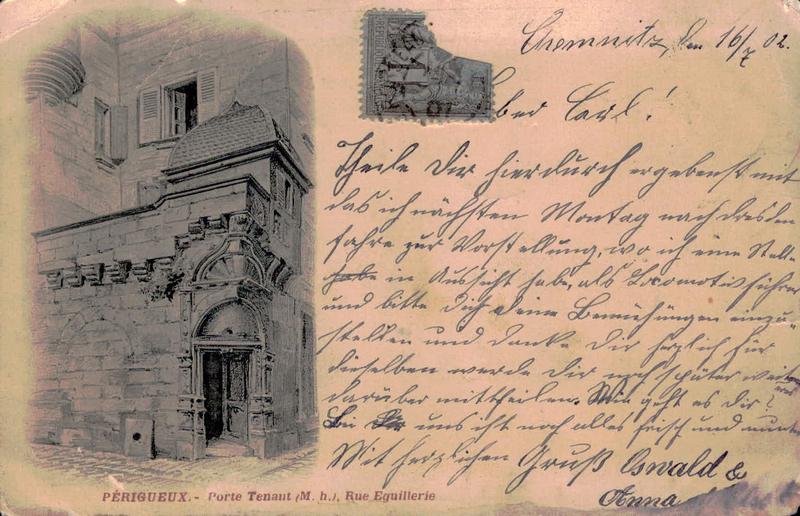 Chemnitz, den 16/7 02.
Lieber Carl!
Theile Dir hierdurch ergebenst mit
das ich nächsten Montag nach Dresden
fahre zur Vorstellung, wo ich eine Stell-
in Aussicht habe, als Locomotivführer
und bitte Dich deine Bemühungen einzu-
stellen und danke Dir herzlich für
dieselben werde Dir noch später weiter
darüber mittheilen. Wie geht es Dir?
Bei uns ist noch alles frisch und munter
Mit herzlichen Gruß Oswald &
Anna
PÉRIGUEUX. - Porte Tenant (M. h.), Rue Eguillerie